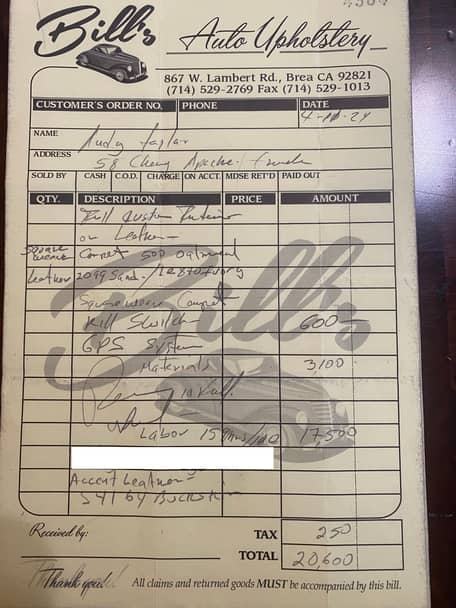 Bill's
Auto Upholstery
867 W. Lambert Rd., Brea CA 92821
(714) 529-2769 Fax (714) 529-1013
CUSTOMER'S ORDER NO. PHONE DATE
NAME
ADDRESS 58 Chevy Apache
SOLD BY CASH C.O.D. CHARGE ON ACCT. MDSE RET'D PAID OUT
QTY. DESCRIPTION PRICE AMOUNT
Full Custom Interior
on Leather
square weave Carpet 500 Oatmeal
Leather 2099 Sand / Ivory
Squareweave Carpet
Kill Switch 600
GPS System
Materials 3,100
in Full
Labor 17,500
Accent Leather
Bill's
Received by:
TAX 250
TOTAL 20,600
Thank you!
All claims and returned goods MUST be accompanied by this bill.